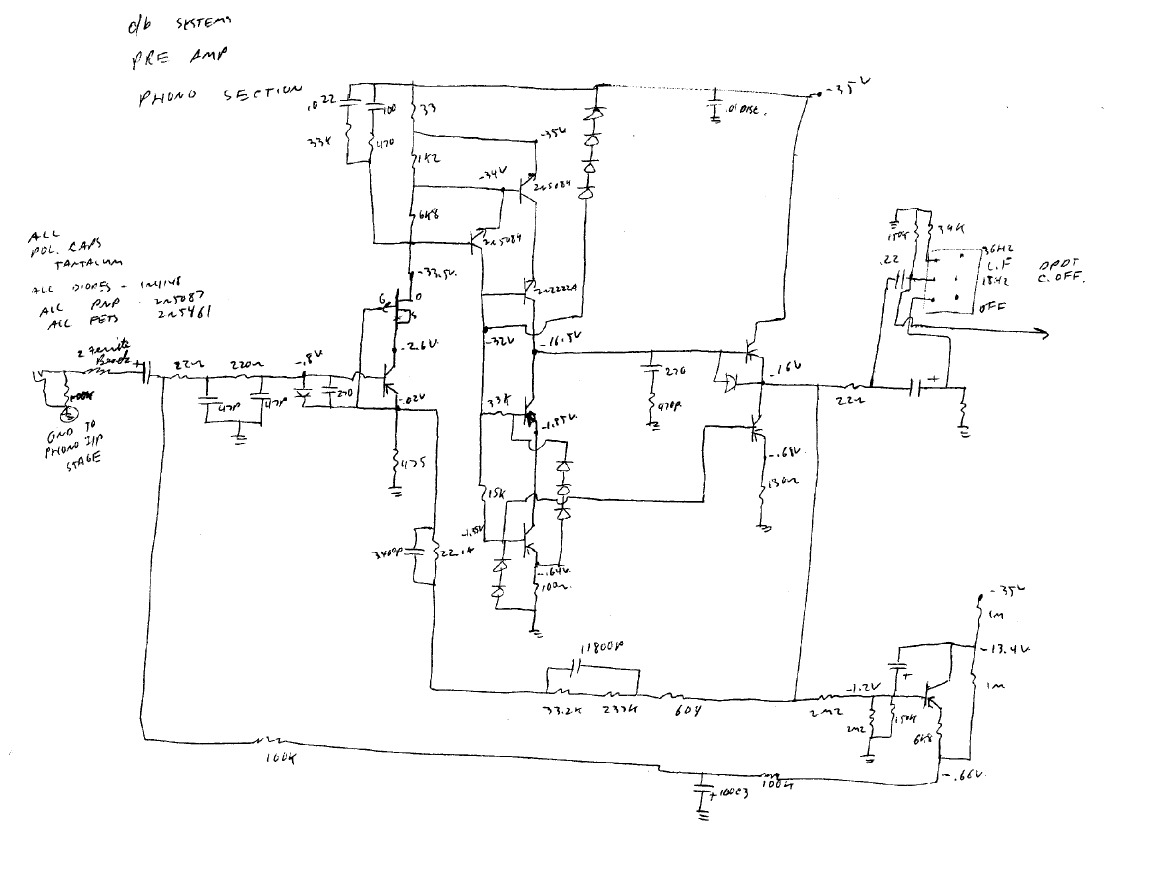 d/b SYSTEMS
PRE AMP
PHONO SECTION
-35V
.022
100
33
.01 DISC.
33K
470
-35V
1K2
-34V
2N5084
6K8
2N5084
150K
34K
36HZ
.22
L.F
DPDT
18HZ
C. OFF.
OFF
ALL
POL. CAPS
TANTALUM
ALL DIODES - 1N4148
ALL PNP - 2N5087
ALL FETS 2N5461
-33.5V.
G
D
S
2N2222A
-32V
-16.5V
2 Ferrite
Beads
+
22Ω
220Ω
-.8V
-2.6V
270
-16V
47P
47P
270
-.02V
33K
-1.85V
470p.
22Ω
+
100K
GND TO
PHONO I/P
STAGE
475
15K
-.68V
130Ω
-1.35V
3400p
22.1K
-.64V
100Ω
11800P
-35V
1M
-13.4V
33.2K
233K
604
2M2
-1.2V
+
1M
2M2
150K
6K8
100K
100K
-.66V.
+100C3